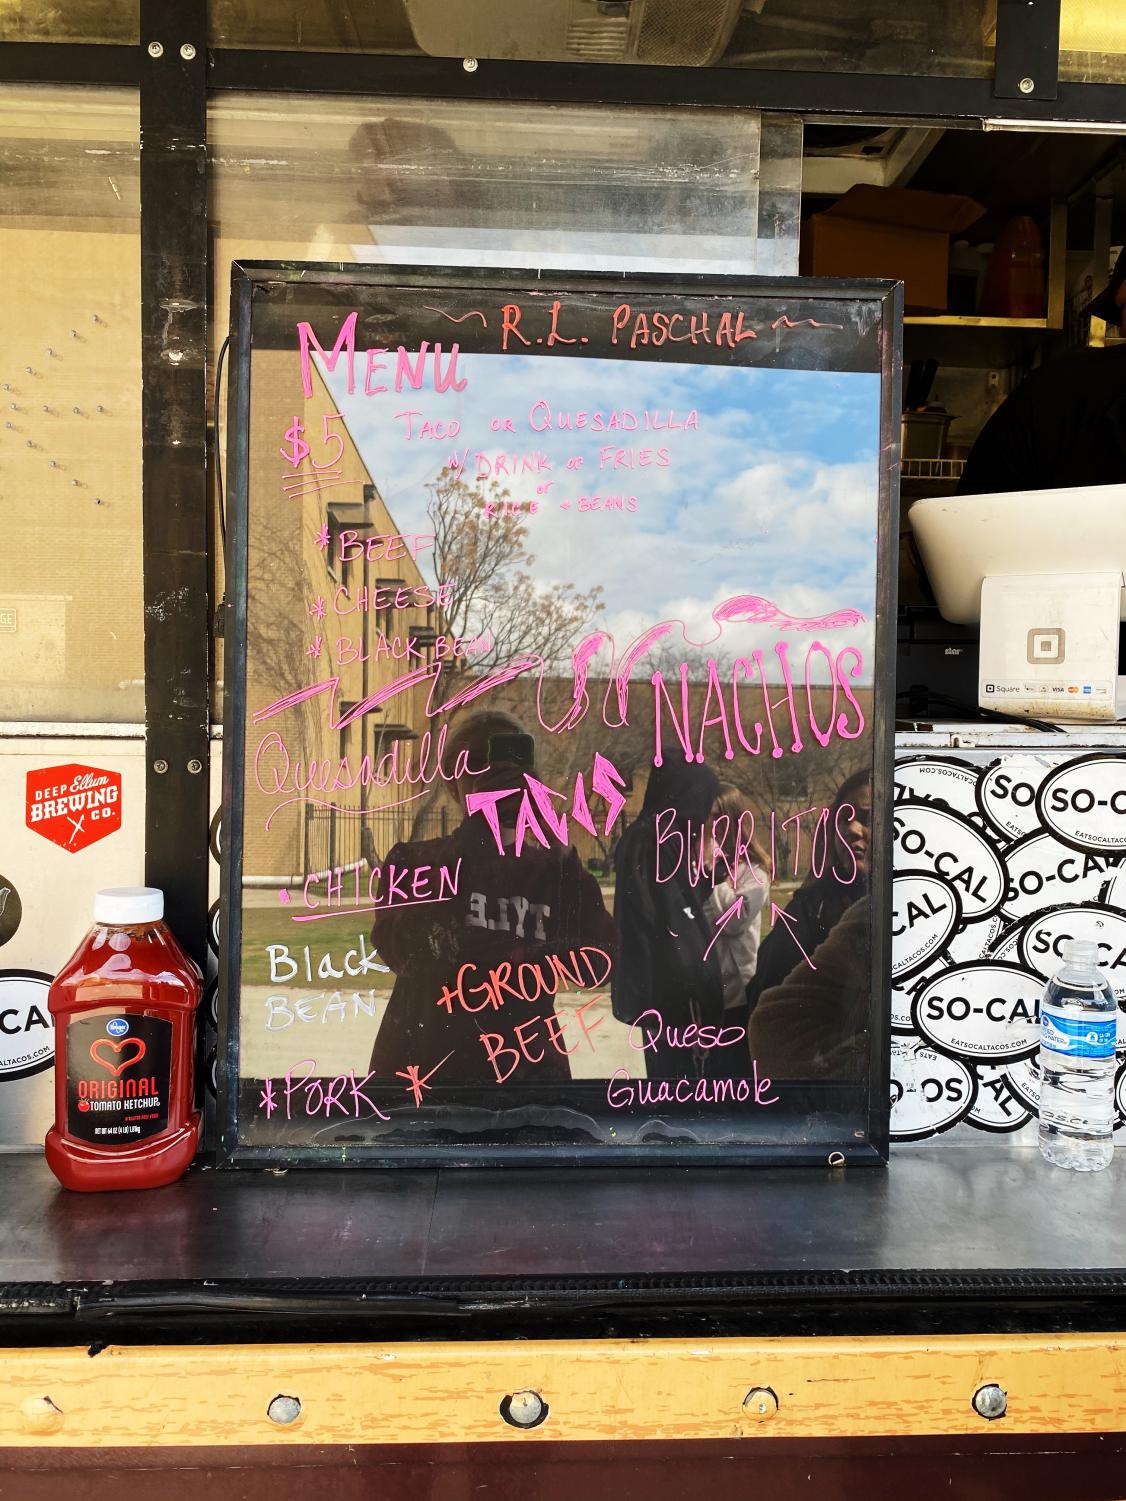 ~ R.L. PASCHAL ~
MENU
$5 TACO OR QUESADILLA
W/ DRINK or FRIES
or
RICE + BEANS
* BEEF
* CHEESE
* BLACK BEAN
NACHOS
Quesadilla
TACOS
BURRITOS
• CHICKEN
Black
BEAN
+GROUND
BEEF
Queso
*PORK *
Guacamole
DEEP Ellum
BREWING
CO.
Kroger
ORIGINAL
TOMATO KETCHUP
NET WT 64 OZ (4 LB) 1.81kg
star
Square
VISA
SO-CAL
EATSOCALTACOS.COM
SO-CAL
SO-CAL
SO-CAL
EATSOCALTACOS.COM
TYLE